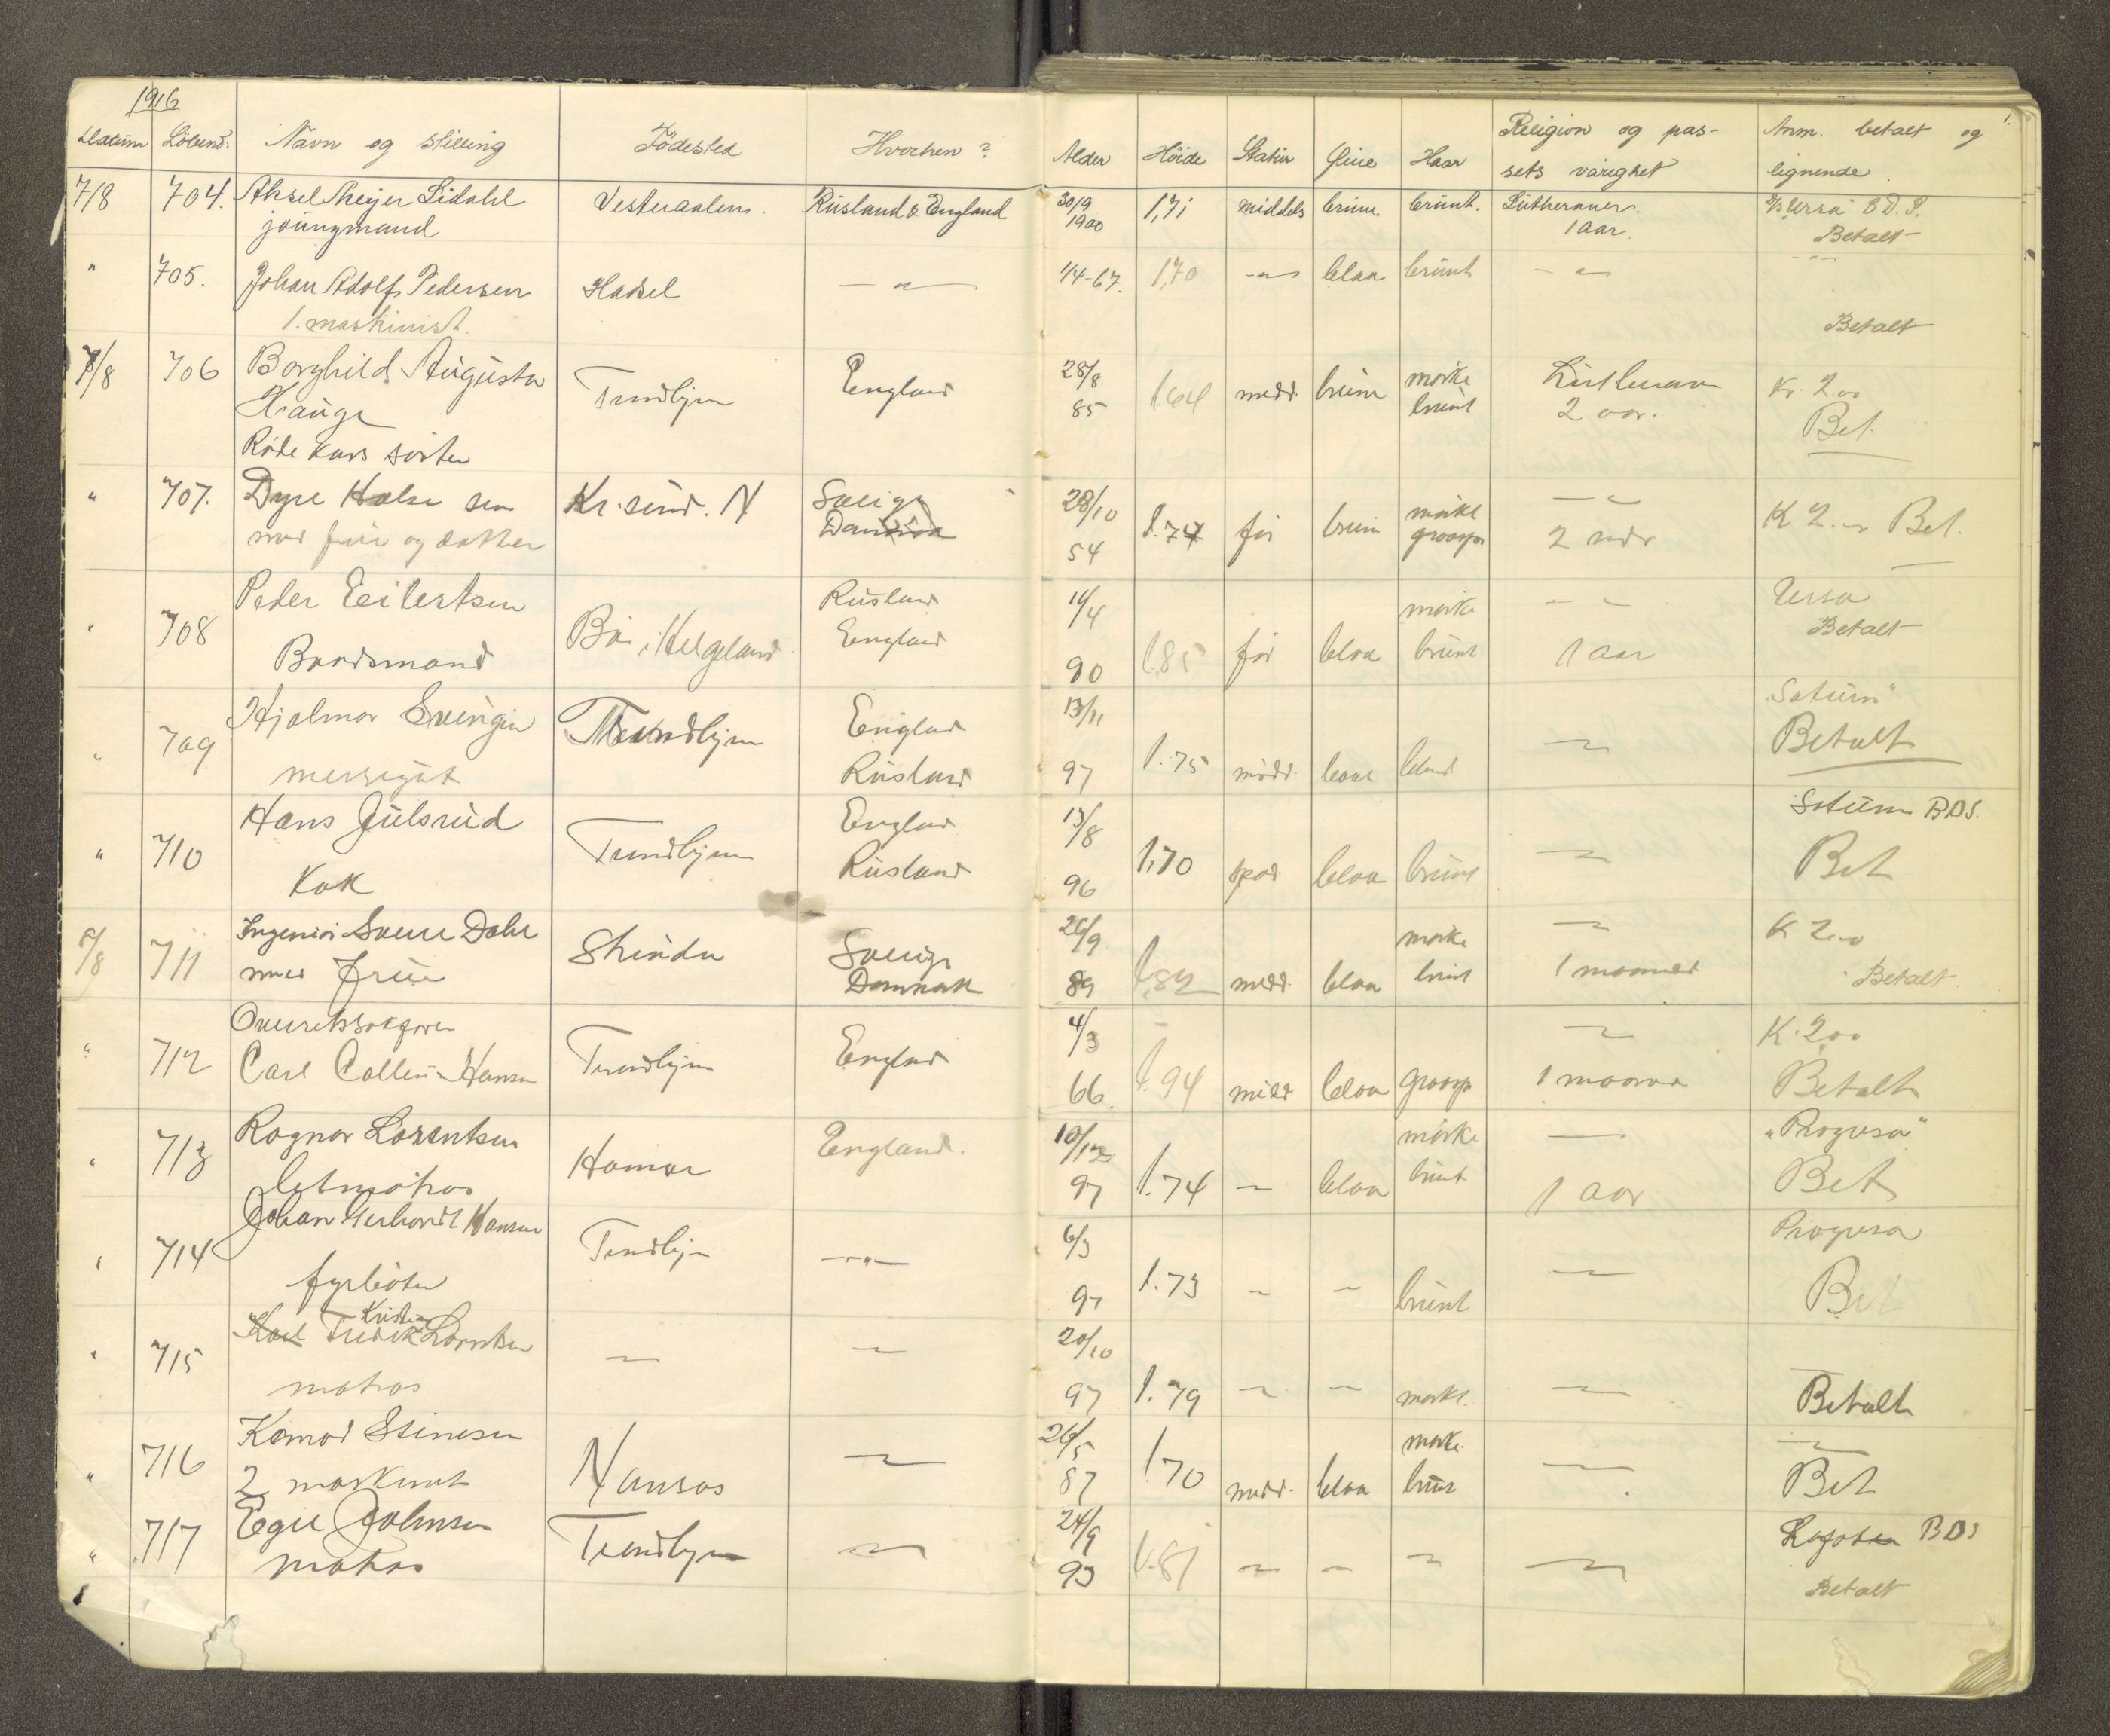 1916
Datum Löbenr. Navn og stilling Födested Hvorhen? Alder Höide Statur Öine Haar Religion og pas- Anm. betalt og 1.
sets varighet lignende
7/8 704. Aksel Meyer Lidahl Vesteraalen. Rusland & England 30/9 1,71 middels brune brunt. Lutheraner. "Ursa" B.D.S.
joungmand 1900 1 aar. Betalt
" 705. Johan Adolf Pedersen Hadsel — " — 1/4-67. 1,70 -"- blaa brunt - " -
1. maskinist. Betalt
8/8 706 Borghild Augusta Trondhjem England 28/8 1.64 midd. brune mörke Lutheraner Kr. 2.00
Hauge 85 brunt 2 aar. Bet.
Röde kors söster
" 707. Dyre Halse sen Kr.sund. N Sverige 28/10 1.74 för brun mörke — " — K 2.00 Bet.
med frue og datter Danmark 54 graaspr 2 mdr
Peder Eilertsen Rusland 11/4 mörke - " - Ursa
" 708 Bö i Helgeland England Betalt
Baadsmand 90 1.85 för blaa brunt 1 aar
Hjalmar England 13/11 Saturn"
" 709 Trondhjem 1.75 midd. blaa blond — " — Betalt
messegut Rusland 97
Hans Julsrud England 13/8 Saturn BDS.
" 710 Trondhjem Rusland 1,70 spæd blaa brunt — " — Bet
Kok 96
8/8 711 Ingeniör Sverre Dahl Sverige 26/9 mörke — " — K 2.00
med Frue Danmark 89 1.82 midd. blaa brunt 1 maaned Betalt
Overretssakförer 4/3 — " — K. 2,00
" 712 Carl Collin Hansen Trondhjem England 66. 1.94 midd blaa graaspr 1 maaned Betalt
Ragnar Lorentsen England. 10/12 mörke — " — "Progresa"
" 713 Hamar 97 1.74 — blaa brunt 1 aar Bet
Letmatros
Johan Gerhardt Hansen 6/3 Progresa
" 714 Trondhjem — " — 1.73 — " — Bet
fyrböter 97 brunt
Kristian
Karl Fredrik Lorentsen 20/10
" 715 — " — — " —
matros 97 1.79 — " — — mörke. — " — Betalt
Konrad Stinesen 26/5 mörke — " —
" 716 Namsos — " — 1.70 — " — Bet
2 maskinist 87 midd. blaa brunt
Egil Johnsen Trondhjem — " — 24/9 Lofoten BDS
" 717 matros 93 1.81 — " — — " — — " — — " — Betalt